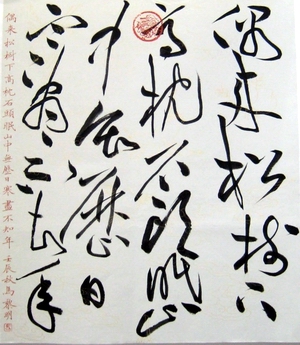 偶来松樹下
高枕石頭眠山
中無歷日
寒盡不知年
偶来松樹下高枕石頭眠山中無歷日寒盡不知年 壬辰